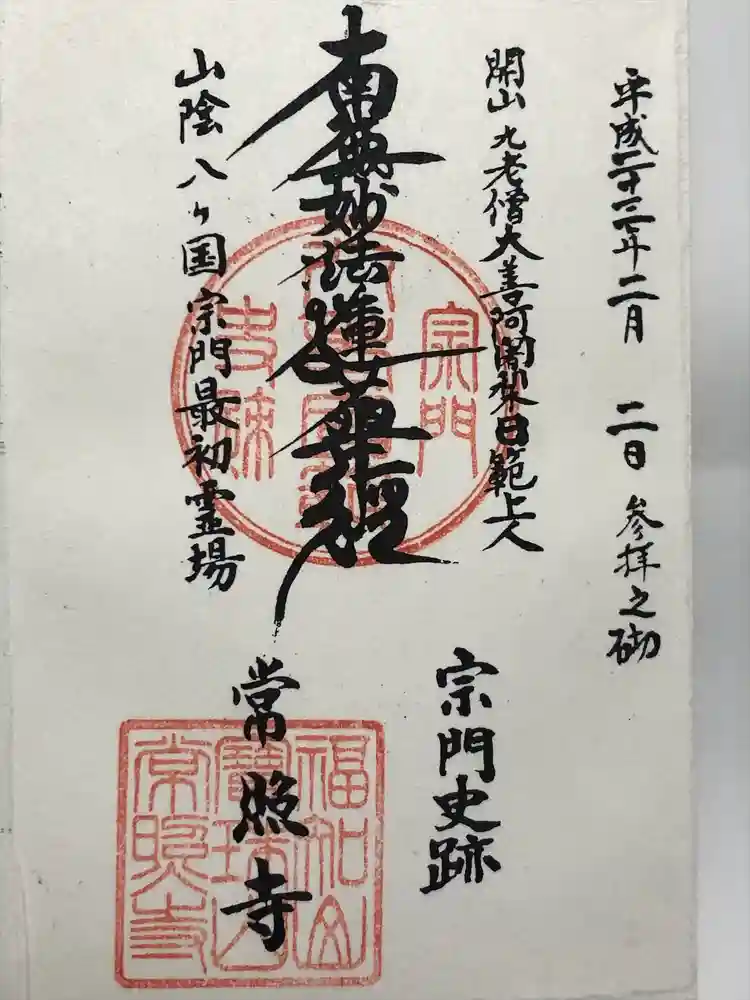 平成二十三年二月 二日 参拝之砌
開山 九老僧大善阿闍梨日範上人
宗門史跡
南無妙法蓮華経
山陰八ヶ国宗門最初霊場
常照寺
宗門
史跡
福知山
寶珠山
常照寺